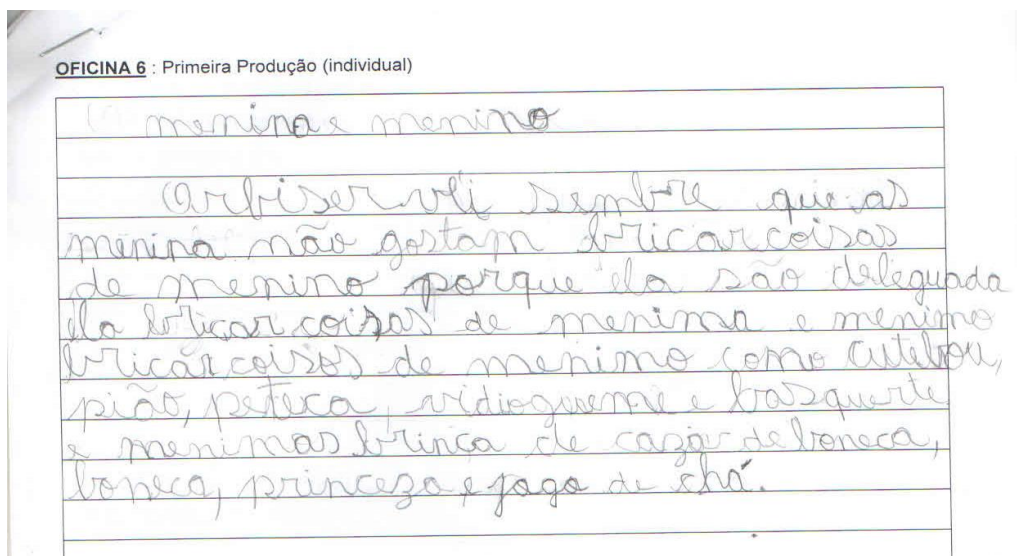 OFICINA 6 : Primeira Produção (individual)
menina e menino
Orbiservli sembre que as
menina não gostam bricar coisas
de menino porque ela são deleguada
ela bricar coizas de menima e menimo
bricar coisas de menimo como cutebou,
pião, peteca, vidiogueme e basquerte
e menimas brinca de caza de boneca,
boneca, princeza e joga de chá.